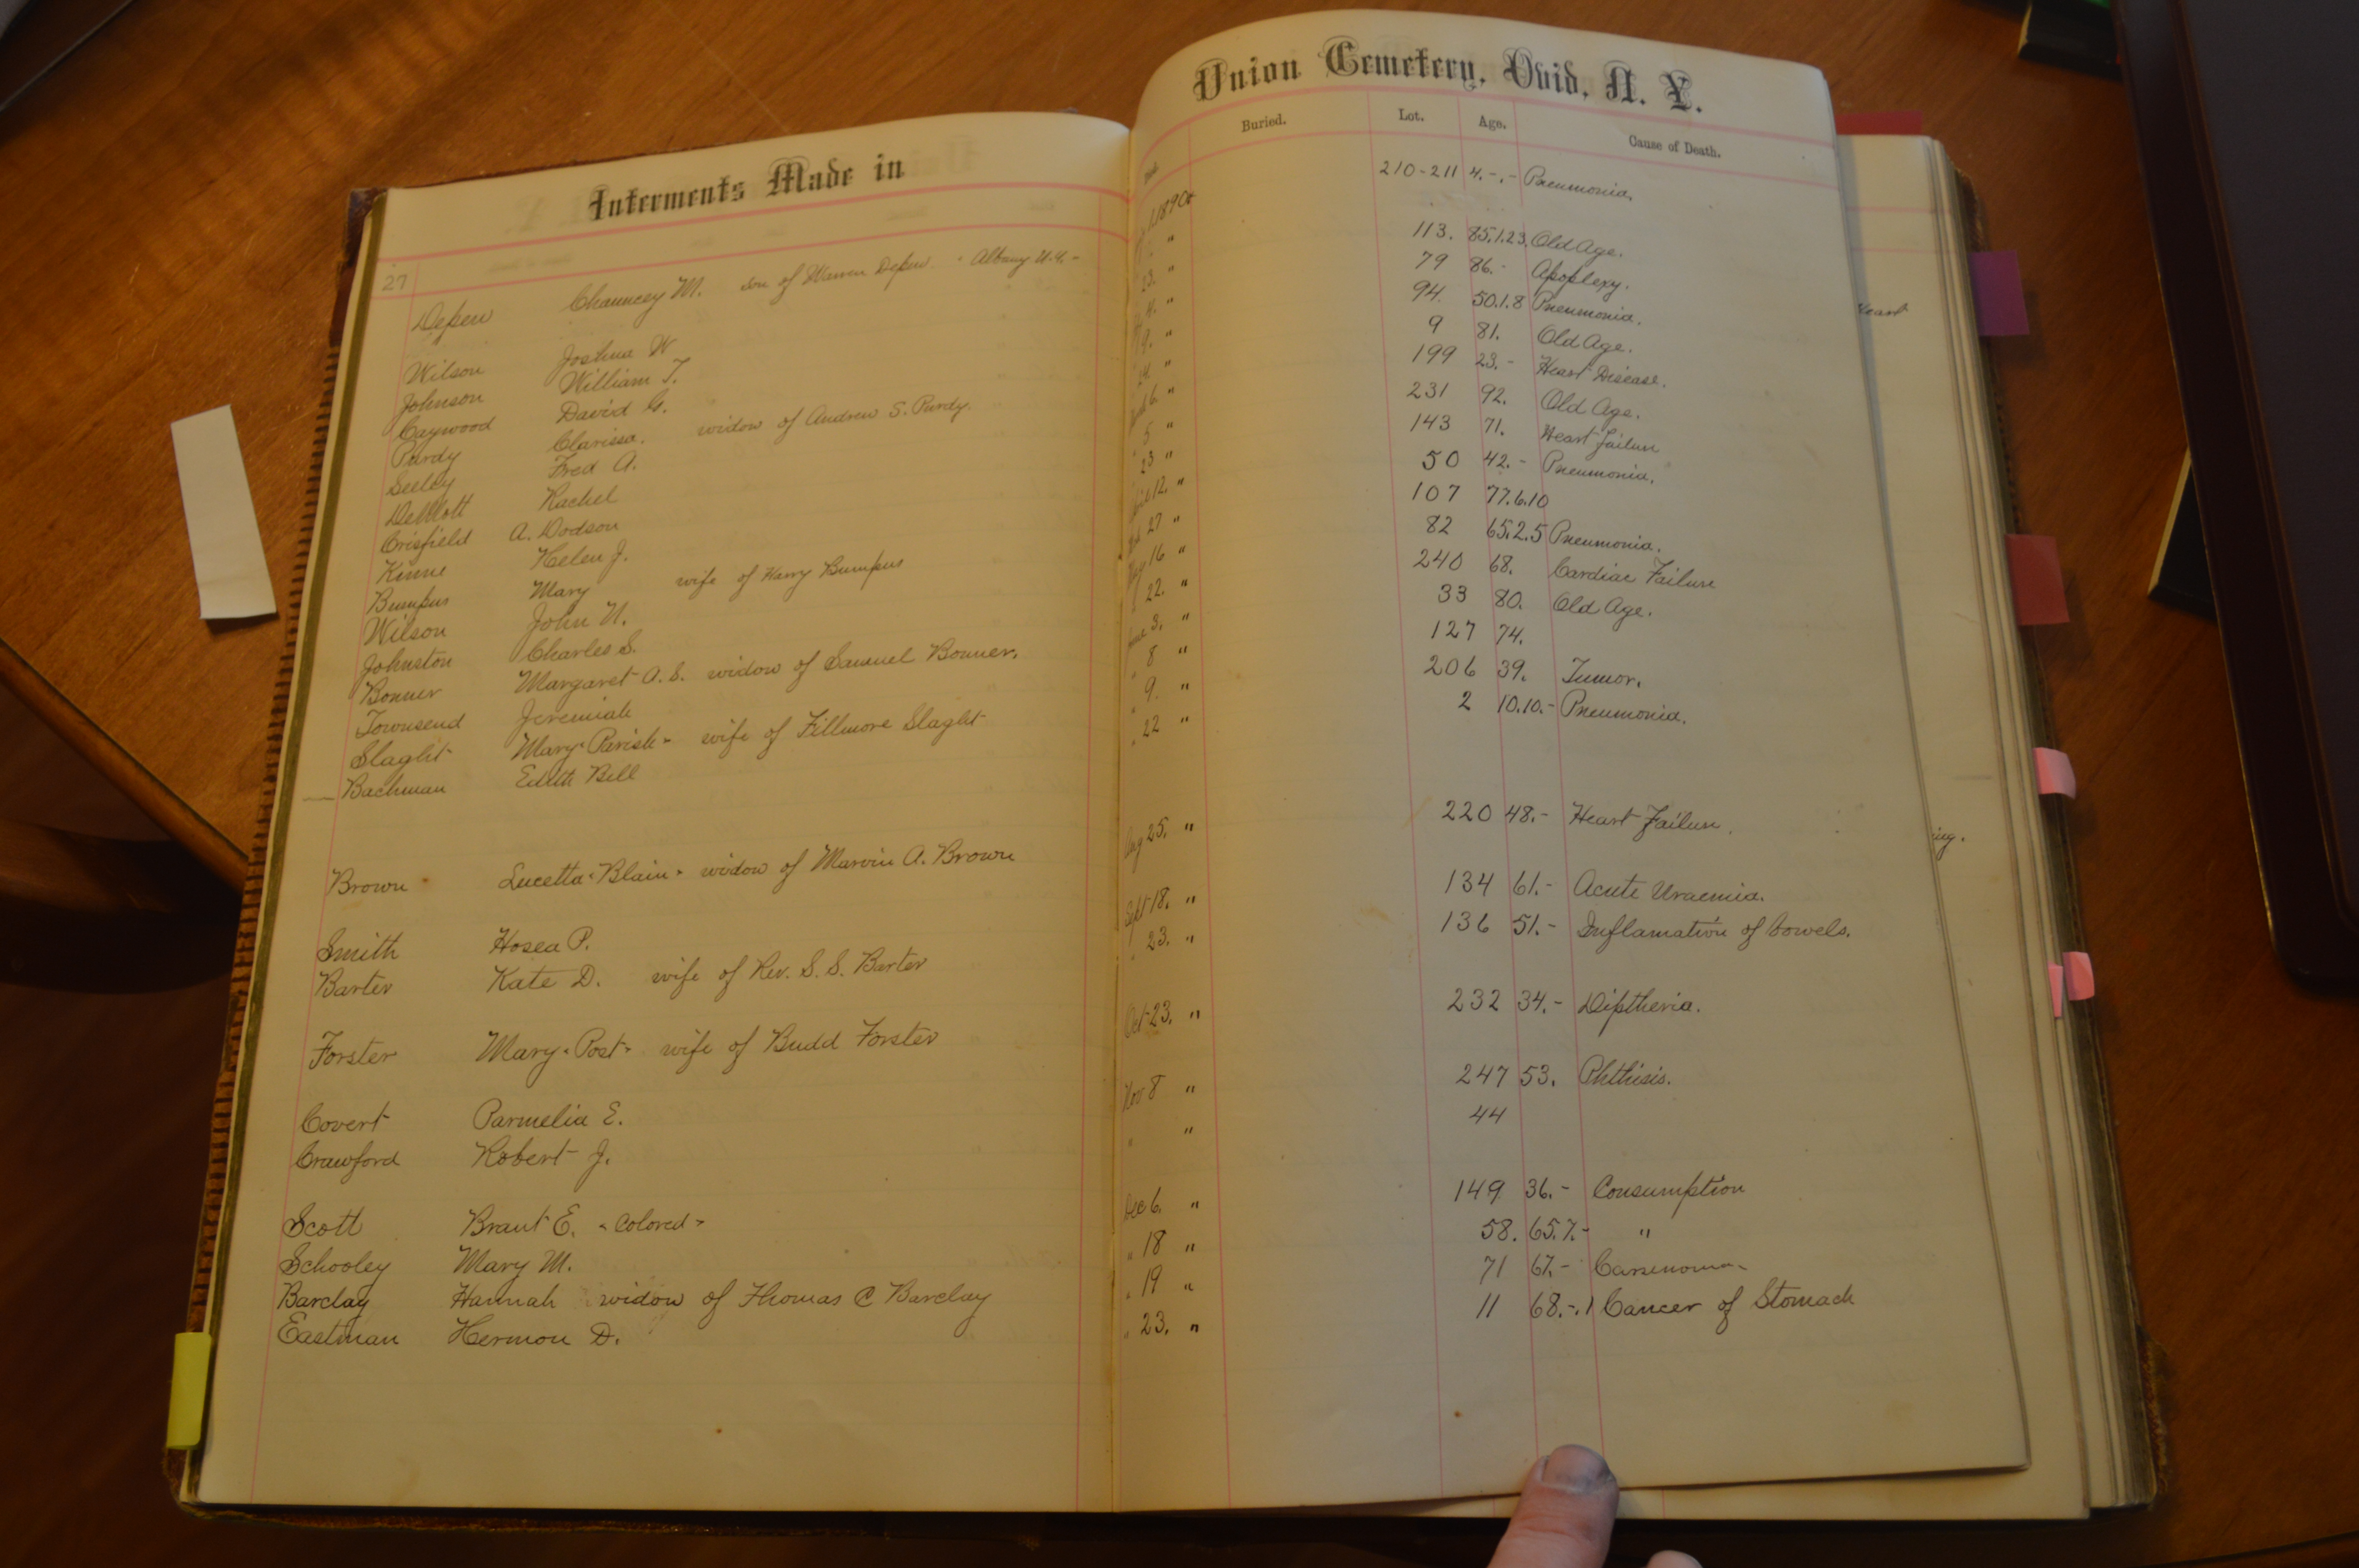 Interments Made in
Union Cemetery, Ovid, N. Y.
Buried. Lot. Age. Cause of Death.
27
Depew Chauncey M. son of Warren Depew. - Albany N.Y. - 1890 210-211 4.-.- Pneumonia.
Wilson Joshua W " 113. 85.1.23. Old Age.
Johnson William T. 23. " 79 86.- Apoplexy.
Caywood David G. " 94. 50.1.8 Pneumonia.
Purdy Clarissa. widow of Andrew S. Purdy. 9. " 9 81. Old Age.
Seeley Fred A. 24. " 199 23.- Heart Disease.
DeMott Rachel 6. " 231 92. Old Age.
Crisfield A. Dodson 5 " 143 71. Heart Failure
Kinne Helen J. 23 " 50 42.- Pneumonia.
Bumpus Mary wife of Harry Bumpus 12. " 107 77.6.10
Wilson John N. 27 " 82 65.2.5 Pneumonia.
Johnston Charles S. May 16 " 240 68. Cardiac Failure
Bonner Margaret A. S. widow of Samuel Bonner. " 22. " 33 80. Old Age.
Townsend Jeremiah June 3. " 127 74.
Slaght Mary "Parish" wife of Fillmore Slaght " 8 " 206 39. Tumor.
Bachman Edith Bell " 9. " 2 10.10.- Pneumonia.
" 22 "
Brown Lucetta "Blain" widow of Marvin A. Brown Aug 25. " 220 48.- Heart Failure.
Smith Hosea P. Sept 18. " 134 61.- Acute Uraemia.
Barter Kate D. wife of Rev. S. S. Barter " 23. " 136 51.- Inflamation of bowels.
Forster Mary "Post" wife of Budd Forster Oct 23. " 232 34.- Diptheria.
Covert Parmelia E. Nov 8 " 247 53. Phthisis.
Crawford Robert J. " " 44
Scott Brant E. "Colored" Dec 6. " 149 36.- Consumption
Schooley Mary M. " 18 " 58. 65.7.- "
Barclay Hannah widow of Thomas C Barclay " 19 " 71 67.- Carsenoma
Eastman Hermon D. " 23. " 11 68.-.1 Cancer of Stomach
Heart
ing.